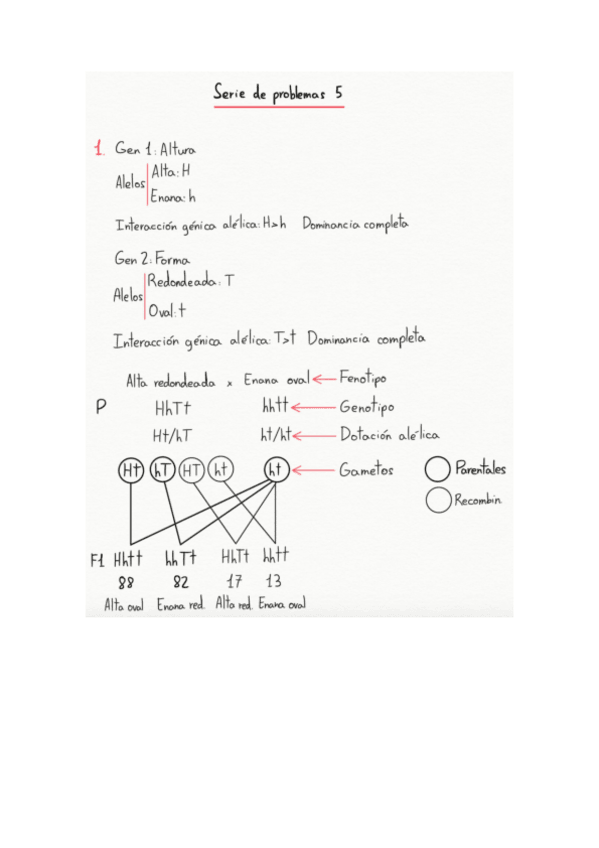 Serie de problemas 5
1. Gen 1: Altura
Alelos
Alta: H
Enana: h
Interacción génica alélica: H>h Dominancia completa
Gen 2: Forma
Alelos
Redondeada: T
Oval: t
Interacción génica alélica: T>t Dominancia completa
Alta redondeada x Enana oval ← Fenotipo
P HhTt hhtt ← Genotipo
Ht/hT ht/ht ← Dotación alélica
Ht hT HT ht ht ← Gametos Parentales
Recombin
F1 Hhtt hhTt HhTt hhtt
88 82 17 13
Alta oval Enana red. Alta red. Enana oval